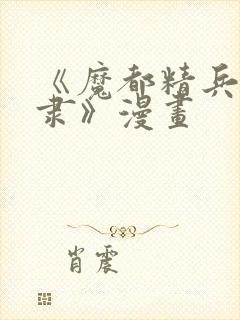 《魔都精兵
隶》漫畫
肖震